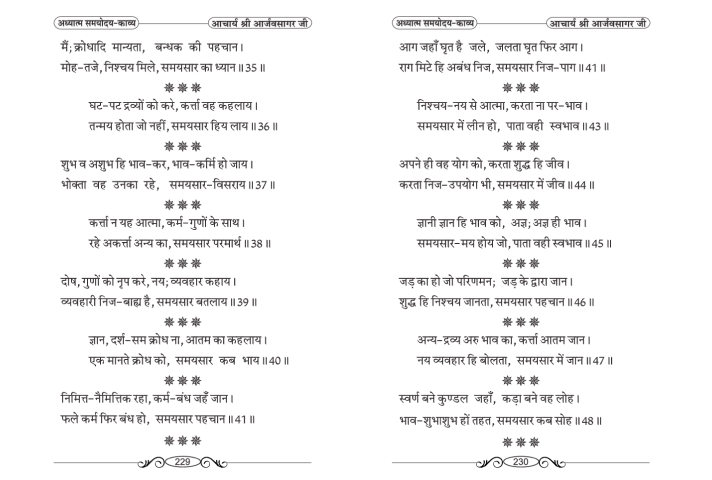 अध्यात्म समयोदय-काव्य
आचार्य श्री आर्जवसागर जी
मैं; क्रोधादि मान्यता, बन्धक की पहचान।
मोह-तजे, निश्चय मिले, समयसार का ध्यान॥35॥
घट-पट द्रव्यों को करे, कर्त्ता वह कहलाय।
तन्मय होता जो नहीं, समयसार हिय लाय॥36॥
शुभ व अशुभ हि भाव-कर, भाव-कर्मि हो जाय।
भोक्ता वह उनका रहे, समयसार-विसराय॥37॥
कर्त्ता न यह आत्मा, कर्म-गुणों के साथ।
रहे अकर्त्ता अन्य का, समयसार परमार्थ॥38॥
दोष, गुणों को नृप करे, नय; व्यवहार कहाय।
व्यवहारी निज-बाह्य है, समयसार बतलाय॥39॥
ज्ञान, दर्श-सम क्रोध ना, आतम का कहलाय।
एक मानते क्रोध को, समयसार कब भाय॥40॥
निमित्त-नैमित्तिक रहा, कर्म-बंध जहँ जान।
फले कर्म फिर बंध हो, समयसार पहचान॥41॥
229
अध्यात्म समयोदय-काव्य
आचार्य श्री आर्जवसागर जी
आग जहाँ घृत है जले, जलता घृत फिर आग।
राग मिटे हि अबंध निज, समयसार निज-पाग॥41॥
निश्चय-नय से आत्मा, करता ना पर-भाव।
समयसार में लीन हो, पाता वही स्वभाव॥43॥
अपने ही वह योग को, करता शुद्ध हि जीव।
करता निज-उपयोग भी, समयसार में जीव॥44॥
ज्ञानी ज्ञान हि भाव को, अज्ञ; अज्ञ ही भाव।
समयसार-मय होय जो, पाता वही स्वभाव॥45॥
जड़ का हो जो परिणमन; जड़ के द्वारा जान।
शुद्ध हि निश्चय जानता, समयसार पहचान॥46॥
अन्य-द्रव्य अरु भाव का, कर्त्ता आतम जान।
नय व्यवहार हि बोलता, समयसार में जान॥47॥
स्वर्ण बने कुण्डल जहाँ, कड़ा बने वह लोह।
भाव-शुभाशुभ हों तहत, समयसार कब सोह॥48॥
230